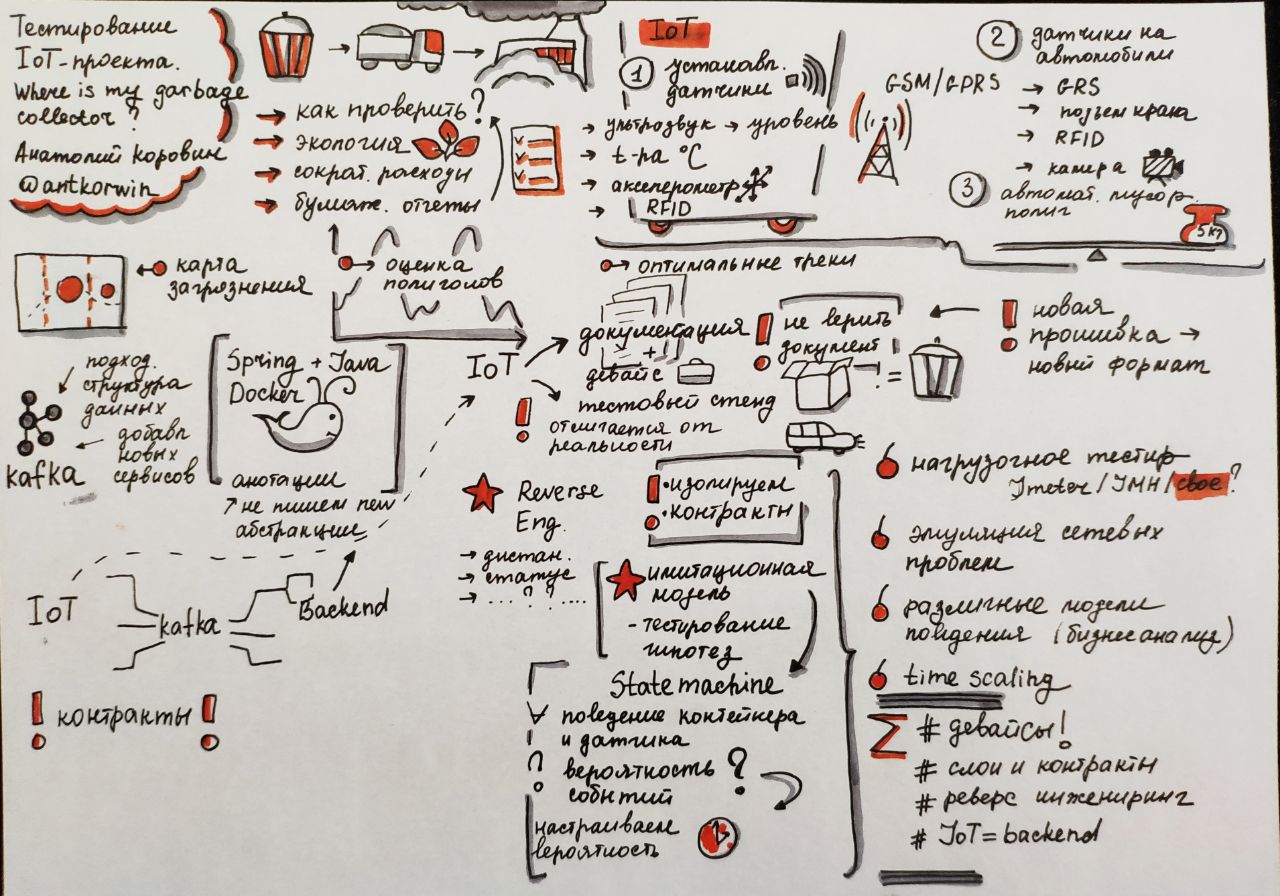 Тестирование
IoT-проекта.
Where is my garbage
collector?
Анатолий Коровин
@antkorwin
→ как проверить?
→ экология
→ сократ. расходы
→ бумаж. отчеты
IoT
1 устанавл.
датчики
→ ультрозвук → уровень
→ t-ра °C
→ акселерометр
→ RFID
GSM/GPRS
2 датчики на
автомобили
→ GRS
→ подъем крана
→ RFID
→ камера
3 автомат. мусор.
полиг
5кг
карта
загрязнения
→ оценка
полиголов
→ оптимальные треки
подход.
структура
данных
добавл
новых
сервисов
kafka
Spring + Java
Docker
анотации
не пишем new
абстракции
IoT
документация
+
девайс
тестовый стенд
отличается от
реальности
! не верить
документ!
! =
! новая
прошивка →
новый формат
Reverse
Eng.
→ дистан.
→ статус
→ ....?.?.....
! • изолируем
• контракты
имитационная
модель
- тестирование
гипотез
State machine
поведение контейнера
и датчика
вероятность ?
событий
настраиваем
вероятность
IoT
kafka
Backend
! контракты !
нагрузочное тестир
Jmeter/JMH/свое?
эмуляция сетевых
проблем
различные модели
поведения (бизнесанализ)
time scaling
Σ # девайсы!
# слои и контракты
# реверс инжениринг
# IoT = backend